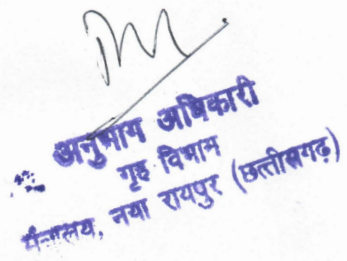 अनुभाग अधिकारी
गृह विभाग
मंत्रालय, नया रायपुर (छत्तीसगढ़)